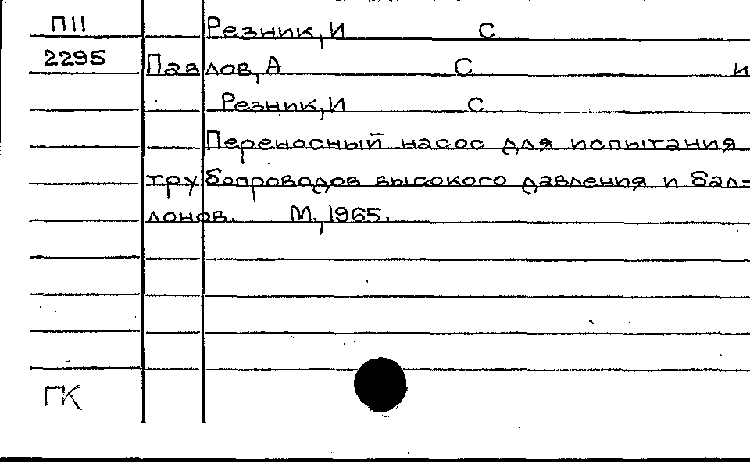 П11 Резник, И С
2295 Павлов, А С и
Резник, И С
Переносный насос для испытания
трубопроводов высокого давления и бал=
лонов. М., 1965.
ГК